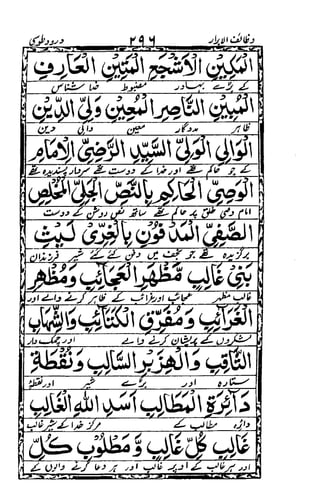 وظائف الابرار ۲۹۶ درود طوسی
الْمَكِيْنِ الْاَشْجَعِ الْمَتِيْنِ الْعَارِفِ
کے بڑے بہادر مضبوط خدا شناس
الْمُبِيْنِ النَّاصِرِ الْمُعِيْنِ وَلِيِّ الدِّيْنِ
ظاہر مددگار معین والی دین
الْوَالِي الْوَلِيِّ السَّيِّدِ الرَّضِيِّ الْاِمَامِ
کے جو حاکم تھے اور خدا کے دوست تھے سردار پسندیدہ تھے
الْوَصِيِّ الْحَاكِمِ بِالنَّصِّ الْجَلِيِّ الْمُخْلِصِ
امام وصی خلق پر حاکم تھے ساتھ نص روشن کے دوست
الصَّفِيِّ الْمَدْفُوْنِ بِالْغَرِيِّ لَيْثِ
برگزیدہ تھے جو نجف میں دفن کئے گئے شیر فرزندان
بَنِيْ غَالِبٍ مَظْهَرِ الْعَجَائِبِ وَمُظْهِرِ
غالب مظہر عجائب اور غرائب کے ظاہر کرنے والے اور
الْغَرَائِبِ وَمُفَرِّقِ الْكَتَائِبِ وَالشِّهَابِ
لشکروں کے پریشان کرنے والے اور چمک دار
الثَّاقِبِ وَالْهِزَبْرِ السَّالِبِ وَنُقْطَةِ
ستارہ اور بڑے شیر اور نقطہ
دَائِرَةِ الْمَطَالِبِ اَسَدِ اللهِ الْغَالِبِ
دائرہ مطالب کے مرکز خدا کے شیر غالب
غَالِبِ كُلِّ غَالِبٍ وَمَطْلُوْبِ كُلِّ
اور ہر غالب کے اوپر غالب اور ہر دعا کرنے والوں کے